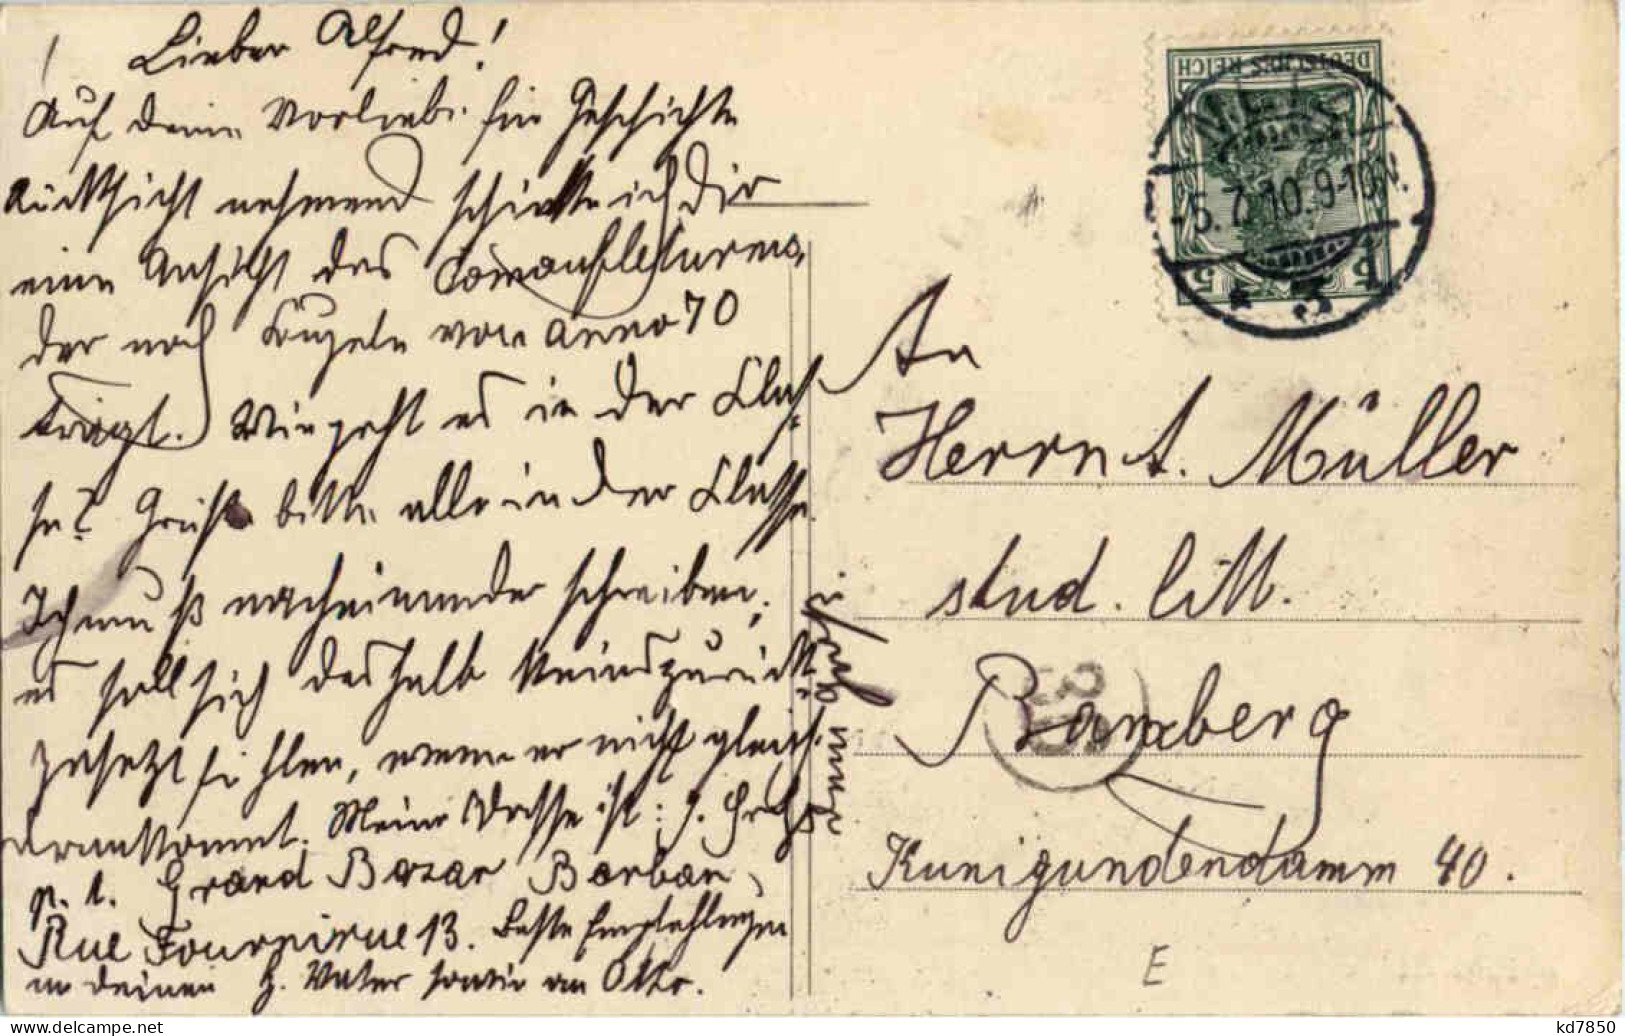 Lieber Alfred!
Auf deine Vorliebe für Geschichte
Rücksicht nehmend schickte ich Dir
eine Ansicht des Romanusturmes,
der noch Kugeln von anno 70
trägt. Wie geht es in der Clas-
se? Grüße bitte alle in der Classe.
Ich muß nacheinander schreiben,
es soll sich deshalb keins zurück-
gesetzt fühlen, wenn er nicht gleich
drankommt. Meine Adresse ist: J.
p. A. Grand Bazar Barban,
Rue Fournirue 13. Beste Empfehlungen
an deinen H. Vater sowie an Otto.
DEUTSCHES REICH
5 5
METZ
-5.7.10.9-10N.
* 3
An
Herrn A. Müller
stud. litt.
Bamberg
Kunigundendamm 40.
E
kd7850